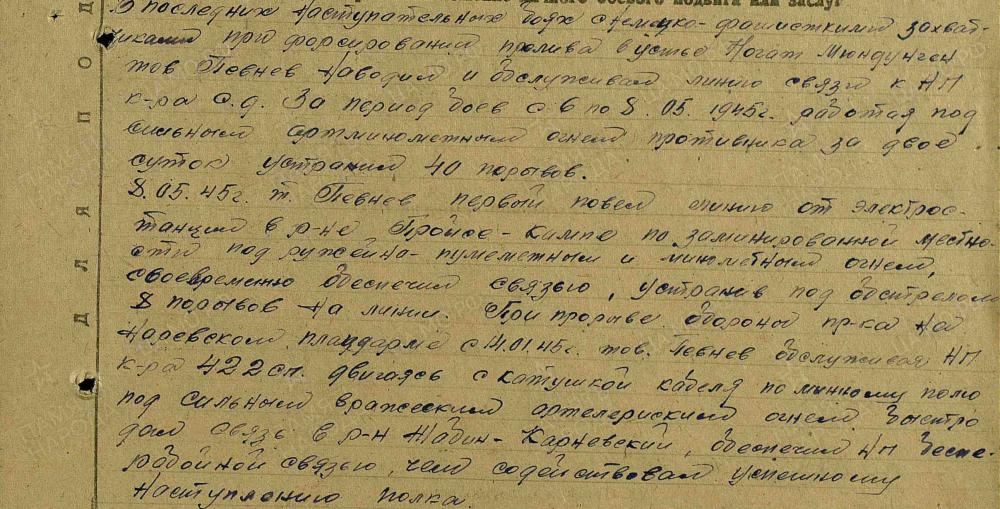 боевого подвига или заслуг
В последних наступательных боях с немецко-фашисткими захват-
чиками при форсировании пролива в устье Ногат Мюндунген
тов Певнев наводил и обслуживал линию связи к НП
к-ра с.д. За период боев с 6 по 8.05.1945г. работая под
сильным артминометным огнем противника за двое
суток устранил 40 порывов.
8.05.45г. т. Певнев первый повел линию от электрос-
танции в р-не Пройсе-Кампе по заминированной местно-
сти под ружейна-пулеметным и минометным огнем,
своевременно обеспечил связью, устранив под обстрелом
8 порывов на линии. При прорыве обороны пр-ка на
Наревском плацдарме с 14.01.45г. тов. Певнев обслуживая НП
к-ра 422 сп. двигаясь с катушкой кабеля по минному полю
под сильным вражеским артелериским огнем быстро
дал связь в р-н Жабин-Карневский, обеспечил НП беспе-
рабойной связью, чем содействовал успешному
наступлению полка.
ДЛЯ ПОД